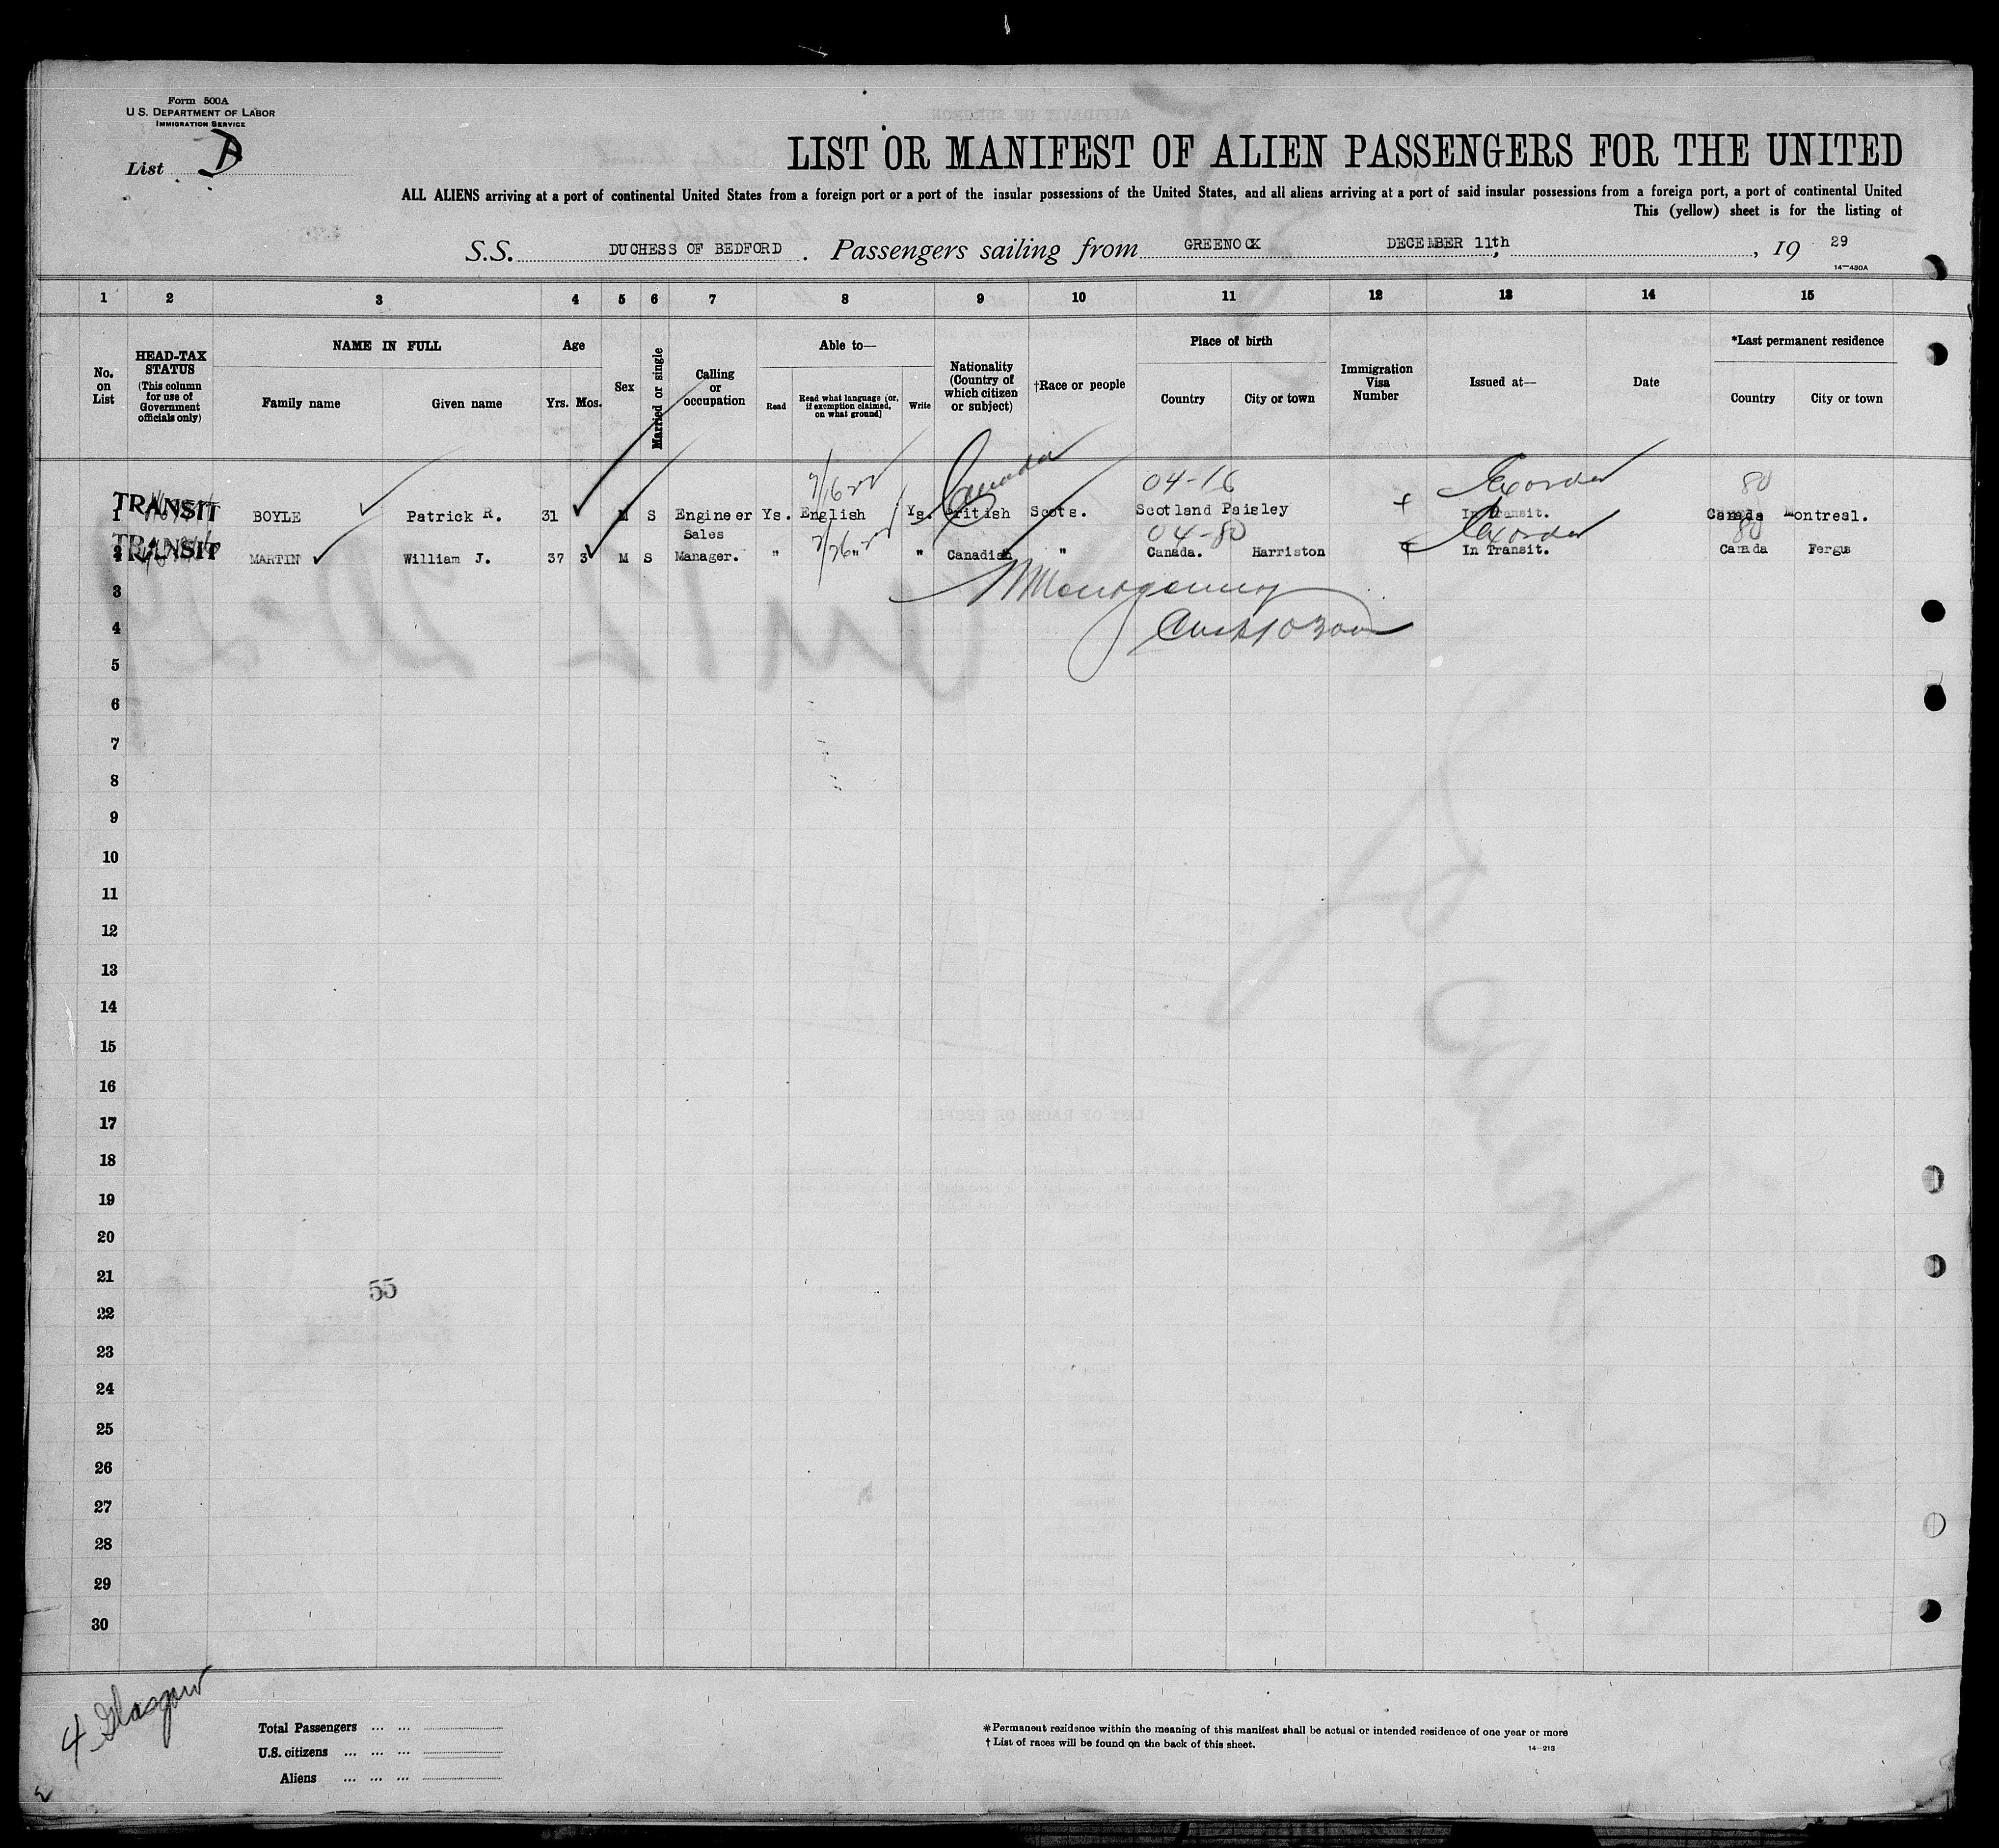 Form 500A
U.S. DEPARTMENT OF LABOR
IMMIGRATION SERVICE
List D
LIST OR MANIFEST OF ALIEN PASSENGERS FOR THE UNITED
ALL ALIENS arriving at a port of continental United States from a foreign port or a port of the insular possessions of the United States, and all aliens arriving at a port of said insular possessions from a foreign port, a port of continental United
This (yellow) sheet is for the listing of
S.S. DUCHESS OF BEDFORD. Passengers sailing from GREENOCK DECEMBER 11th, , 19 29
14—430A
1 2 3 4 5 6 7 8 9 10 11 12 13 14 15
No. on List
HEAD-TAX STATUS (This column for use of Government officials only)
NAME IN FULL
Family name Given name
Age
Yrs. Mos.
Sex
Married or single
Calling or occupation
Able to—
Read Read what language (or, if exemption claimed, on what ground) Write
Nationality (Country of which citizen or subject)
†Race or people
Place of birth
Country City or town
Immigration Visa Number
Issued at—
Date
*Last permanent residence
Country City or town
Canada 04-16 80
1 TRANSIT BOYLE Patrick R. 31 M S Engineer Ys. English Ys. British Scots. Scotland Paisley In Transit. Canada Montreal.
Sales 04-80 80
2 TRANSIT MARTIN William J. 37 3 M S Manager. " " " Canadian " Canada. Harriston In Transit. Canada Fergus
3 Montgomery
4
5
6
7
8
9
10
11
12
13
14
15
16
17
18
19
20
21
55
22
23
24
25
26
27
28
29
30
4 Glasgow
Total Passengers ... ...
U.S. citizens ... ... ...
Aliens ... ... ...
*Permanent residence within the meaning of this manifest shall be actual or intended residence of one year or more
† List of races will be found on the back of this sheet.
14—213